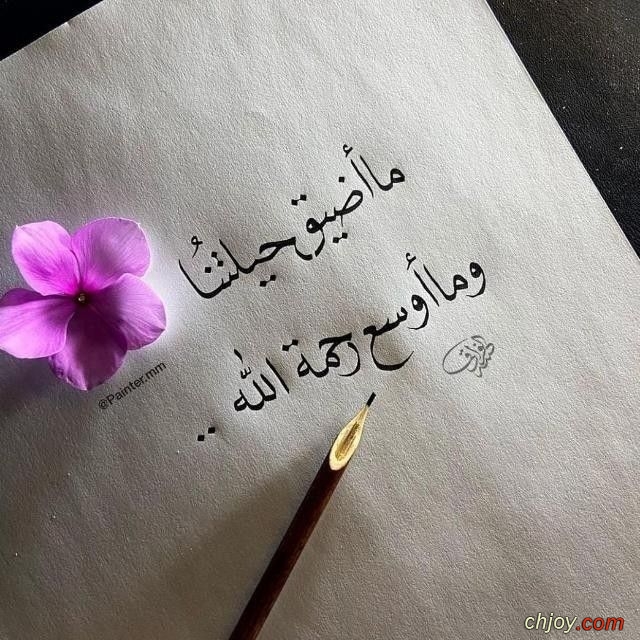 ما أضيق حيلتنُا
وما أوسع رحمة الله ..
@Painter.mm
chjoy.com